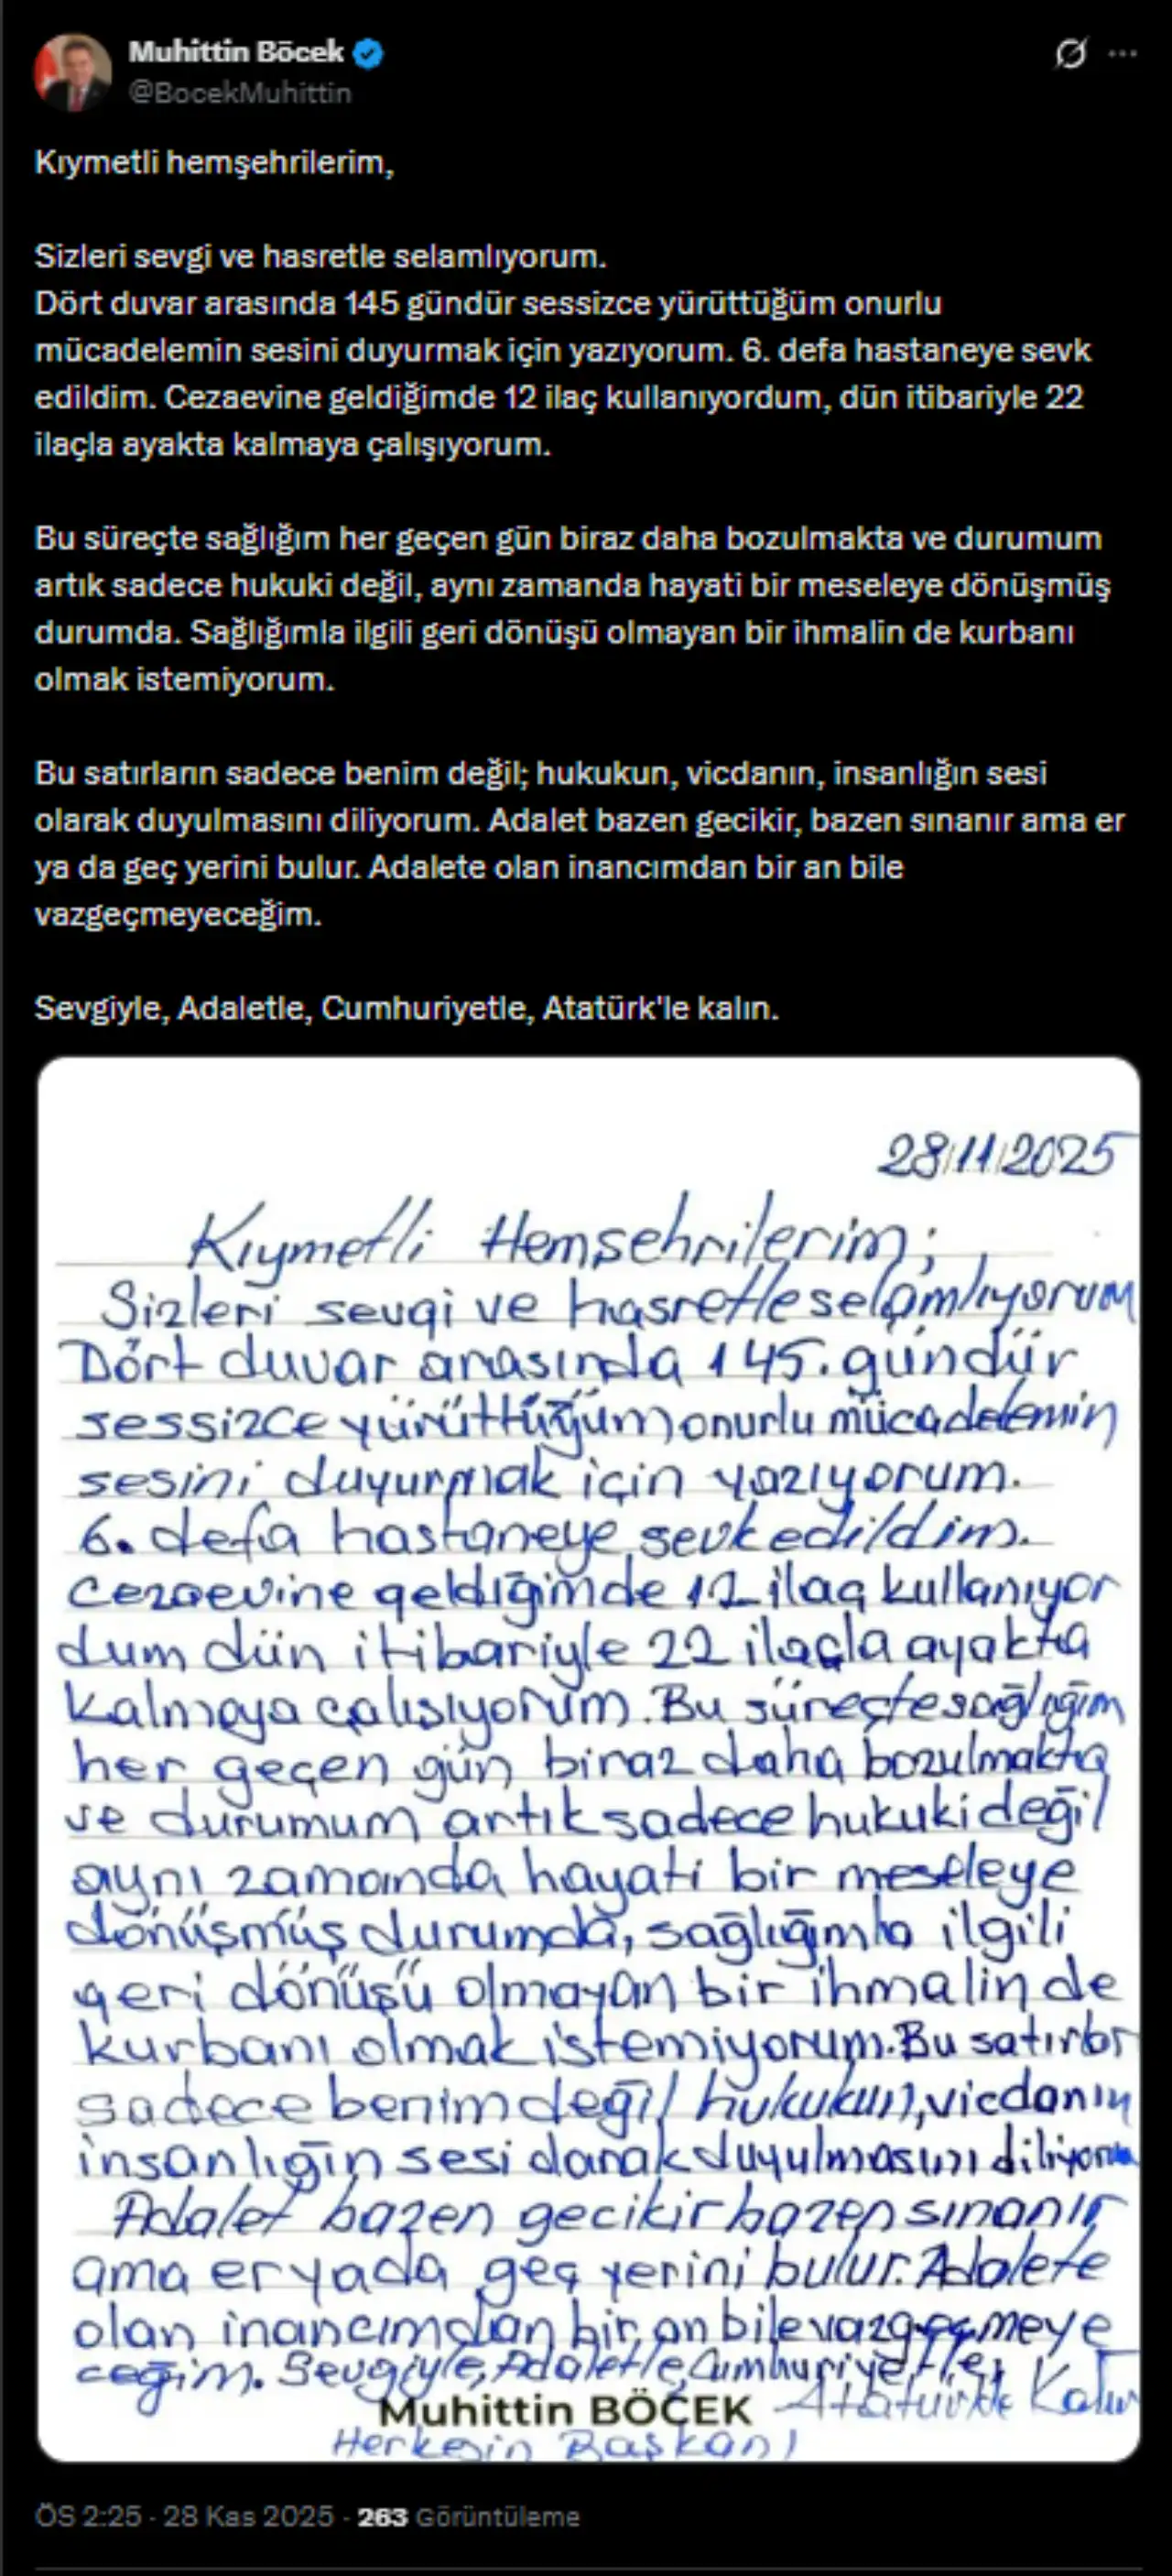 Muhittin Böcek
@BocekMuhittin
Kıymetli hemşehrilerim,
Sizleri sevgi ve hasretle selamlıyorum.
Dört duvar arasında 145 gündür sessizce yürüttüğüm onurlu
mücadelemin sesini duyurmak için yazıyorum. 6. defa hastaneye sevk
edildim. Cezaevine geldiğimde 12 ilaç kullanıyordum, dün itibariyle 22
ilaçla ayakta kalmaya çalışıyorum.
Bu süreçte sağlığım her geçen gün biraz daha bozulmakta ve durumum
artık sadece hukuki değil, aynı zamanda hayati bir meseleye dönüşmüş
durumda. Sağlığımla ilgili geri dönüşü olmayan bir ihmalin de kurbanı
olmak istemiyorum.
Bu satırların sadece benim değil; hukukun, vicdanın, insanlığın sesi
olarak duyulmasını diliyorum. Adalet bazen gecikir, bazen sınanır ama er
ya da geç yerini bulur. Adalete olan inancımdan bir an bile
vazgeçmeyeceğim.
Sevgiyle, Adaletle, Cumhuriyetle, Atatürk'le kalın.
28/11/2025
Kıymetli Hemşehrilerim;
Sizleri sevgi ve hasretle selamlıyorum
Dört duvar arasında 145. gündür
sessizce yürüttüğüm onurlu mücadelemin
sesini duyurmak için yazıyorum.
6. defa hastaneye sevk edildim.
Cezaevine geldiğimde 12 ilaç kullanıyor
dum dün itibariyle 22 ilaçla ayakta
kalmaya çalışıyorum. Bu süreçte sağlığım
her geçen gün biraz daha bozulmakta
ve durumum artık sadece hukuki değil
aynı zamanda hayati bir meseleye
dönüşmüş durumda, sağlığımla ilgili
geri dönüşü olmayan bir ihmalin de
kurbanı olmak istemiyorum. Bu satırlar
sadece benim değil hukukun, vicdanın
insanlığın sesi olarak duyulmasını diliyorum
Adalet bazen gecikir bazen sınanır
ama er yada geç yerini bulur. Adalete
olan inancımdan bir an bile vazgeçmeye
ceğim. Sevgiyle, Adaletle, Cumhuriyetle,
Atatürkle Kalın
Muhittin BÖCEK
Herkesin Başkanı
ÖS 2:25 · 28 Kas 2025 · 263 Görüntüleme